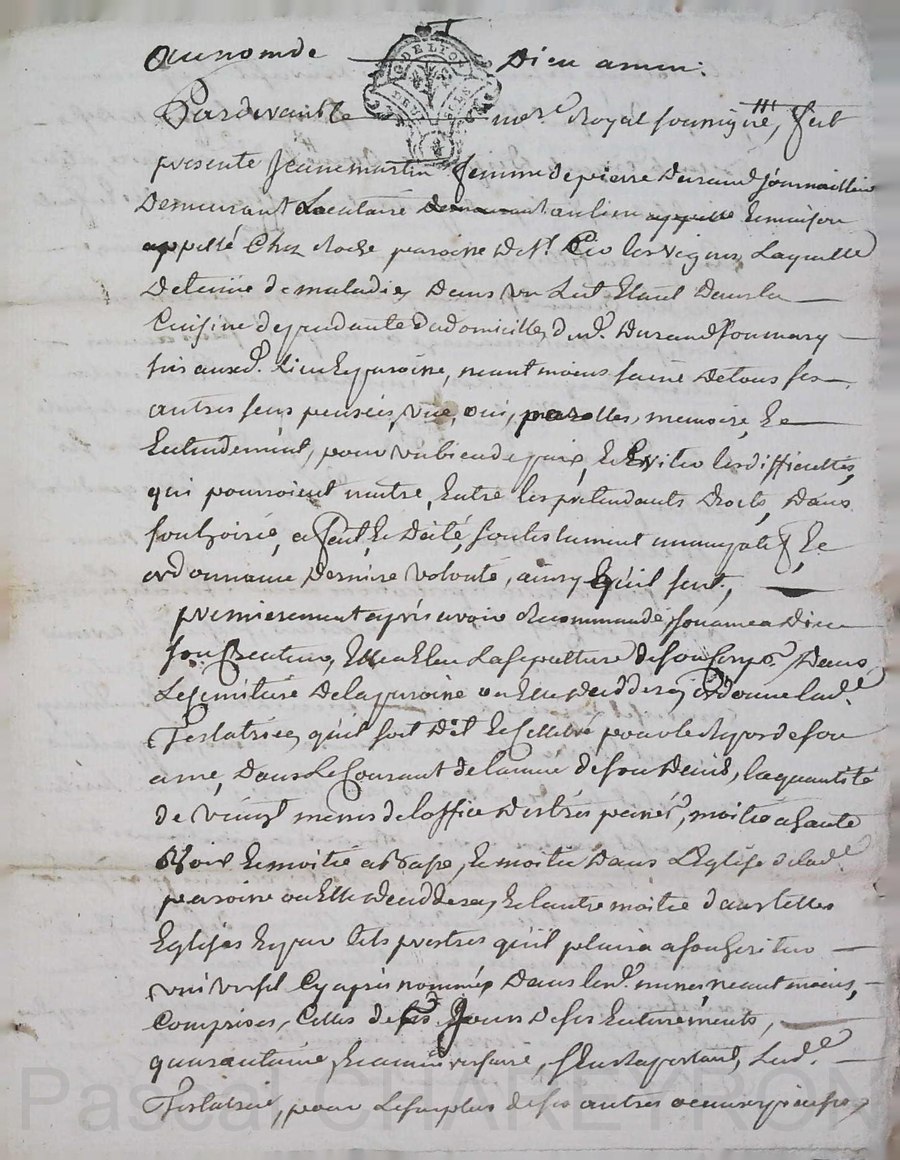 Au nom de Dieu amen.
Pardevant le no.re Royal soussigné, fut
presente Jeanne martin femme de pierre Durand journaillier
Demeurant Locataire au lieu et maison
appellé Chez paroisse De St. les vignes, Laquelle
Detenüe de maladie, Dans un Lit Etant Dans la
Cuisine dependante du domicille, dud. Durand son mary
sis aux d. Lieu et paroisse, neantmoins saine De tous ses
autres sens pensée, vüe, oüi, parolles, memoire, Et
Entendement, pour un bien de paix, Et Eviter les difficultés,
qui pourroient naitre, Entre les pretendants Droits, Dans
son hoirie, a fait, Et Dicté, son testament nuncupatif, Et
ordonnance Derniere volonté, ainsy qu'il suit,
premierement aprés avoir Recommandé, son ame a Dieu
son Createur, Elle a Eleu La sepulture de son Corps Dans
Le simitiere De la paroisse ou Elle Deceddera, ordonne lad.e
Testatrice, qu'il soit Dit Et Cellebré pour le Repos de son
ame, Dans Le Courant de l'année de son Deceds, la quantité
de vingt messes de l'office Des trépassés, moitié a haute
voix Et moitié a basse, Et moitié Dans L'Eglise de lad.e
paroisse ou Elle Deceddera, Et l'autre moitié dans telles
Eglises Et par tels prestres qu'il plaira a son heritier
universel Cy aprés nommé, Dans les d. messes neantmoins,
Comprises, Celles de ses Jours De ses Enterements,
quarantaine, Et anniversaire, s'En Raportant, Lad.e
Testatrice, pour Le surplus de ses autres oeuvres pieuses,
Pascal CHAREYRON